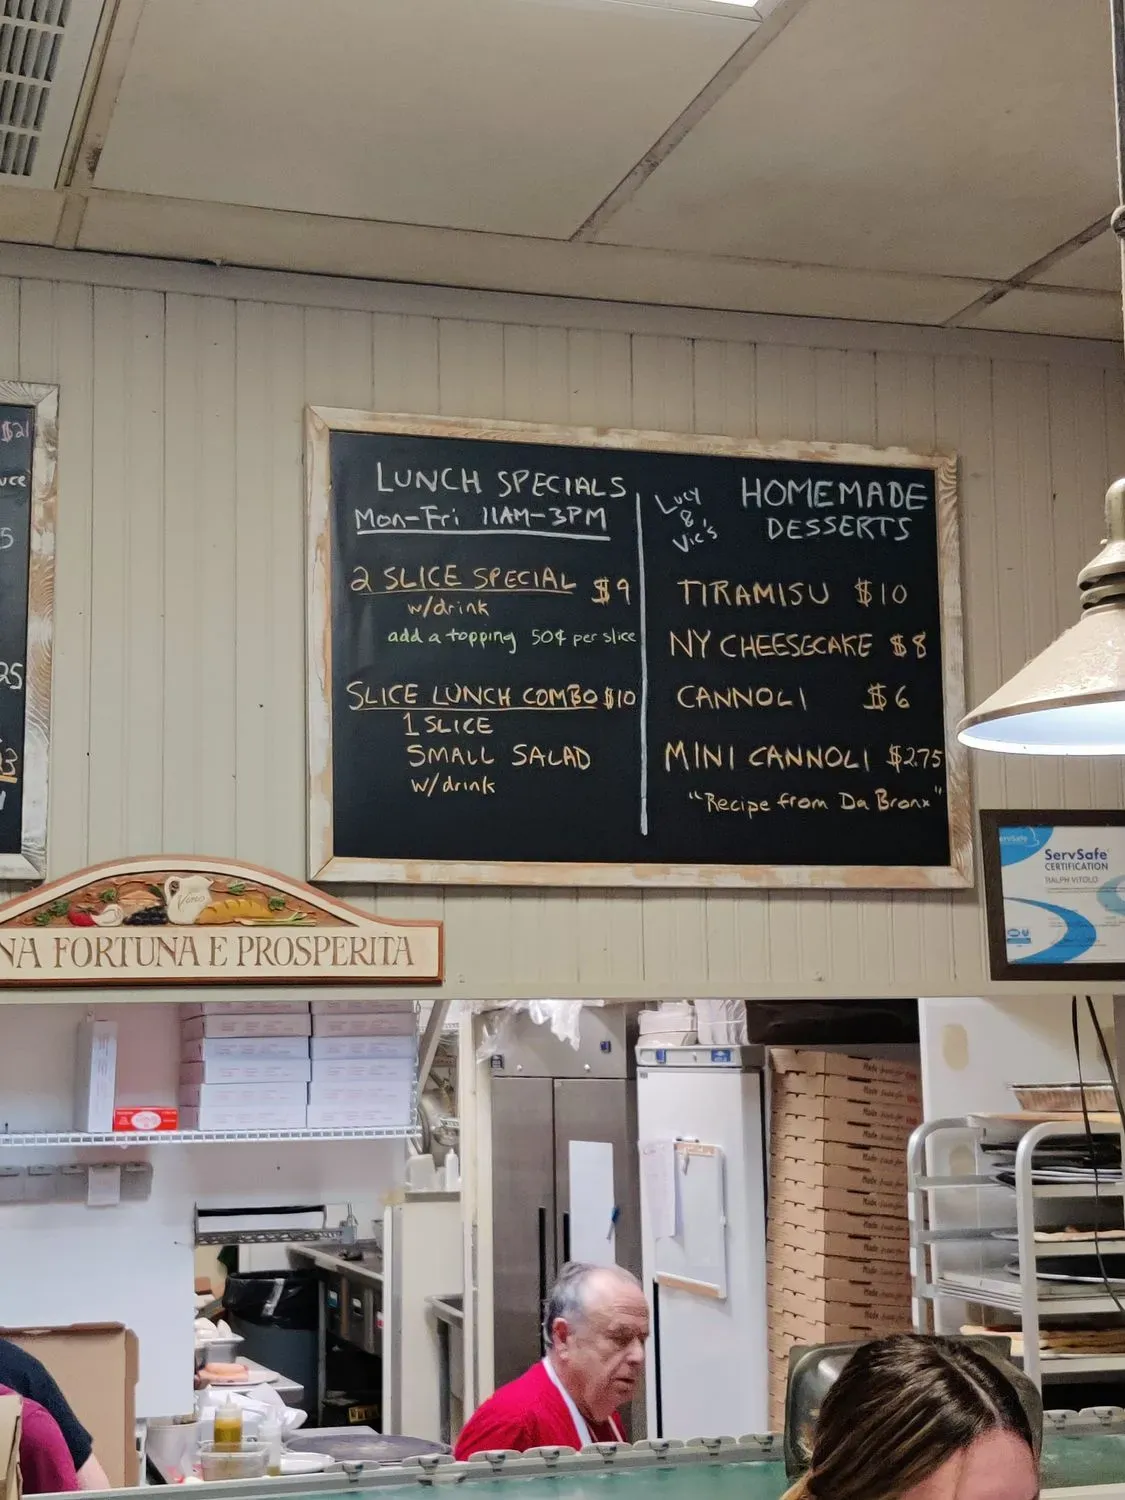 $21
uce
5
25
3
LUNCH SPECIALS
Mon-Fri 11AM-3PM
2 SLICE SPECIAL $9
w/drink
add a topping 50¢ per slice
SLICE LUNCH COMBO $10
1 SLICE
SMALL SALAD
w/drink
Lucy
&
Vic's
HOMEMADE
DESSERTS
TIRAMISU $10
NY CHEESECAKE $8
CANNOLI $6
MINI CANNOLI $2.75
"Recipe from Da Bronx"
ServSafe
ServSafe
CERTIFICATION
RALPH VITOLO
Vino
NA FORTUNA E PROSPERITA